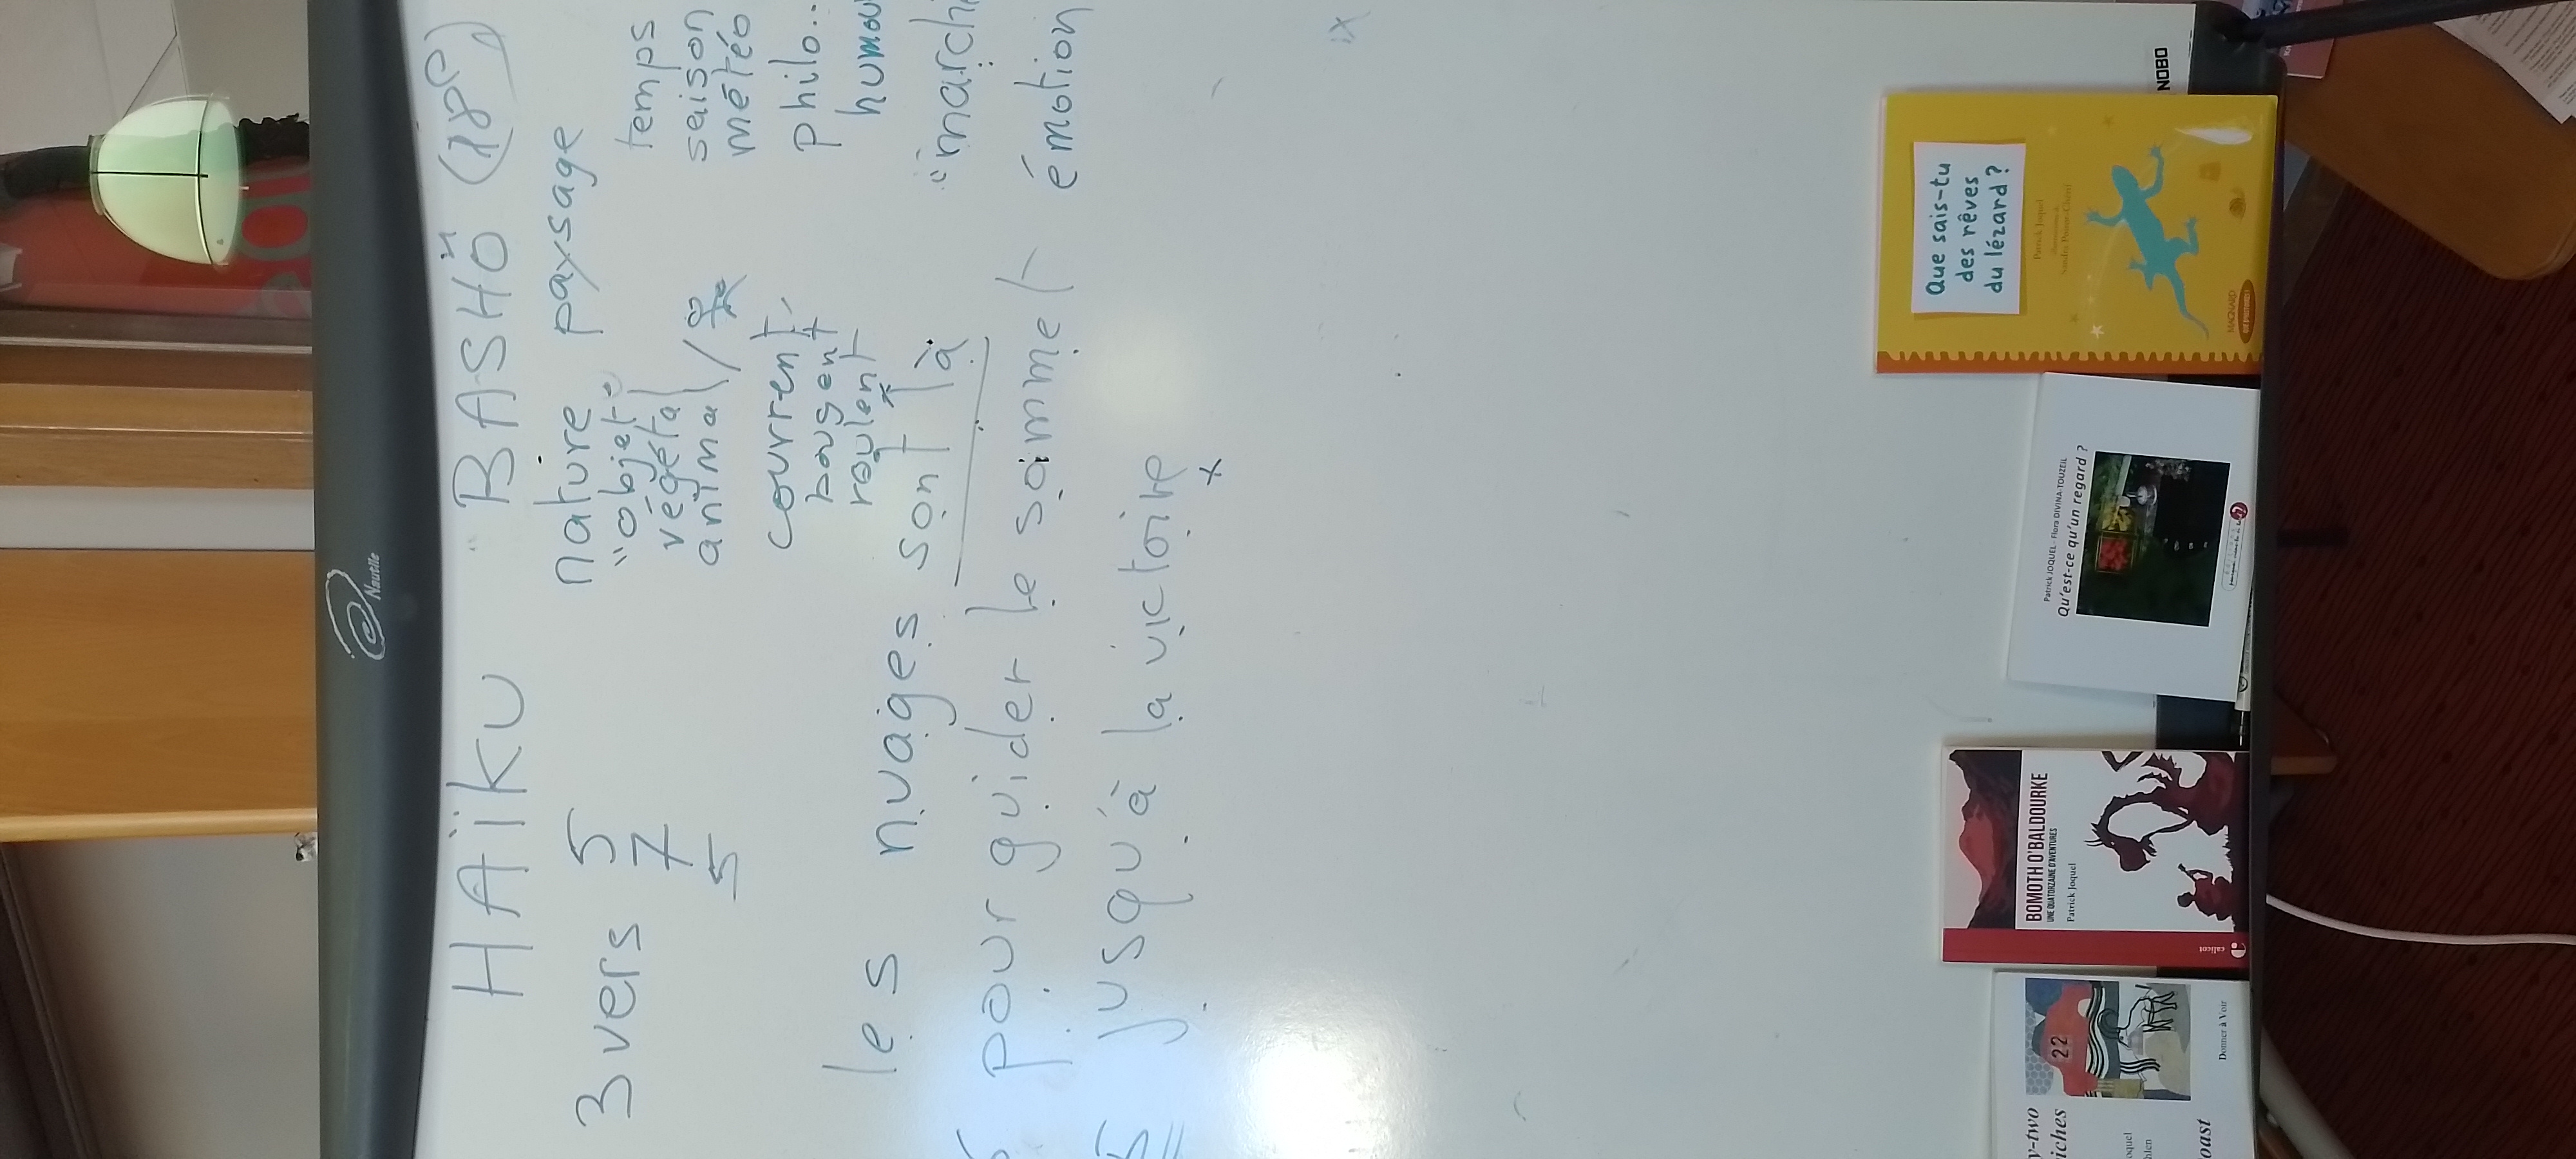 Nautile
HAïKU BASHÔ (18e)
3 vers 5
7
5
nature paysage
"objet"
végétal
animal /
temps
saison
météo
philo...
humou
courent
bougent
roulent
les nuages sont là
"march
pour guider le sommet émotion
5 jusqu'à la victoire
NOBO
Que sais-tu
des rêves
du lézard ?
Patrick Joquel
MAGNARD
Patrick JOQUEL - Flora DIVINA-TOUZEIL
Qu'est-ce qu'un regard ?
BOMOTH O'BALDOURKE
UNE QUATORZAINE D'AVENTURES
Patrick Joquel
calicot
22
Donner à Voir
y-two
iches
oquel
hlen
oast